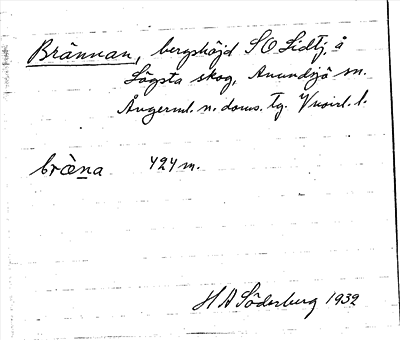 Brännan, bergshöjd SO Lidtj. å
Lägsta skog, Anundsjö sn.
Ångerml. n. doms. Tg. l.
bræ̀na 424 m.
H A Söderberg 1932